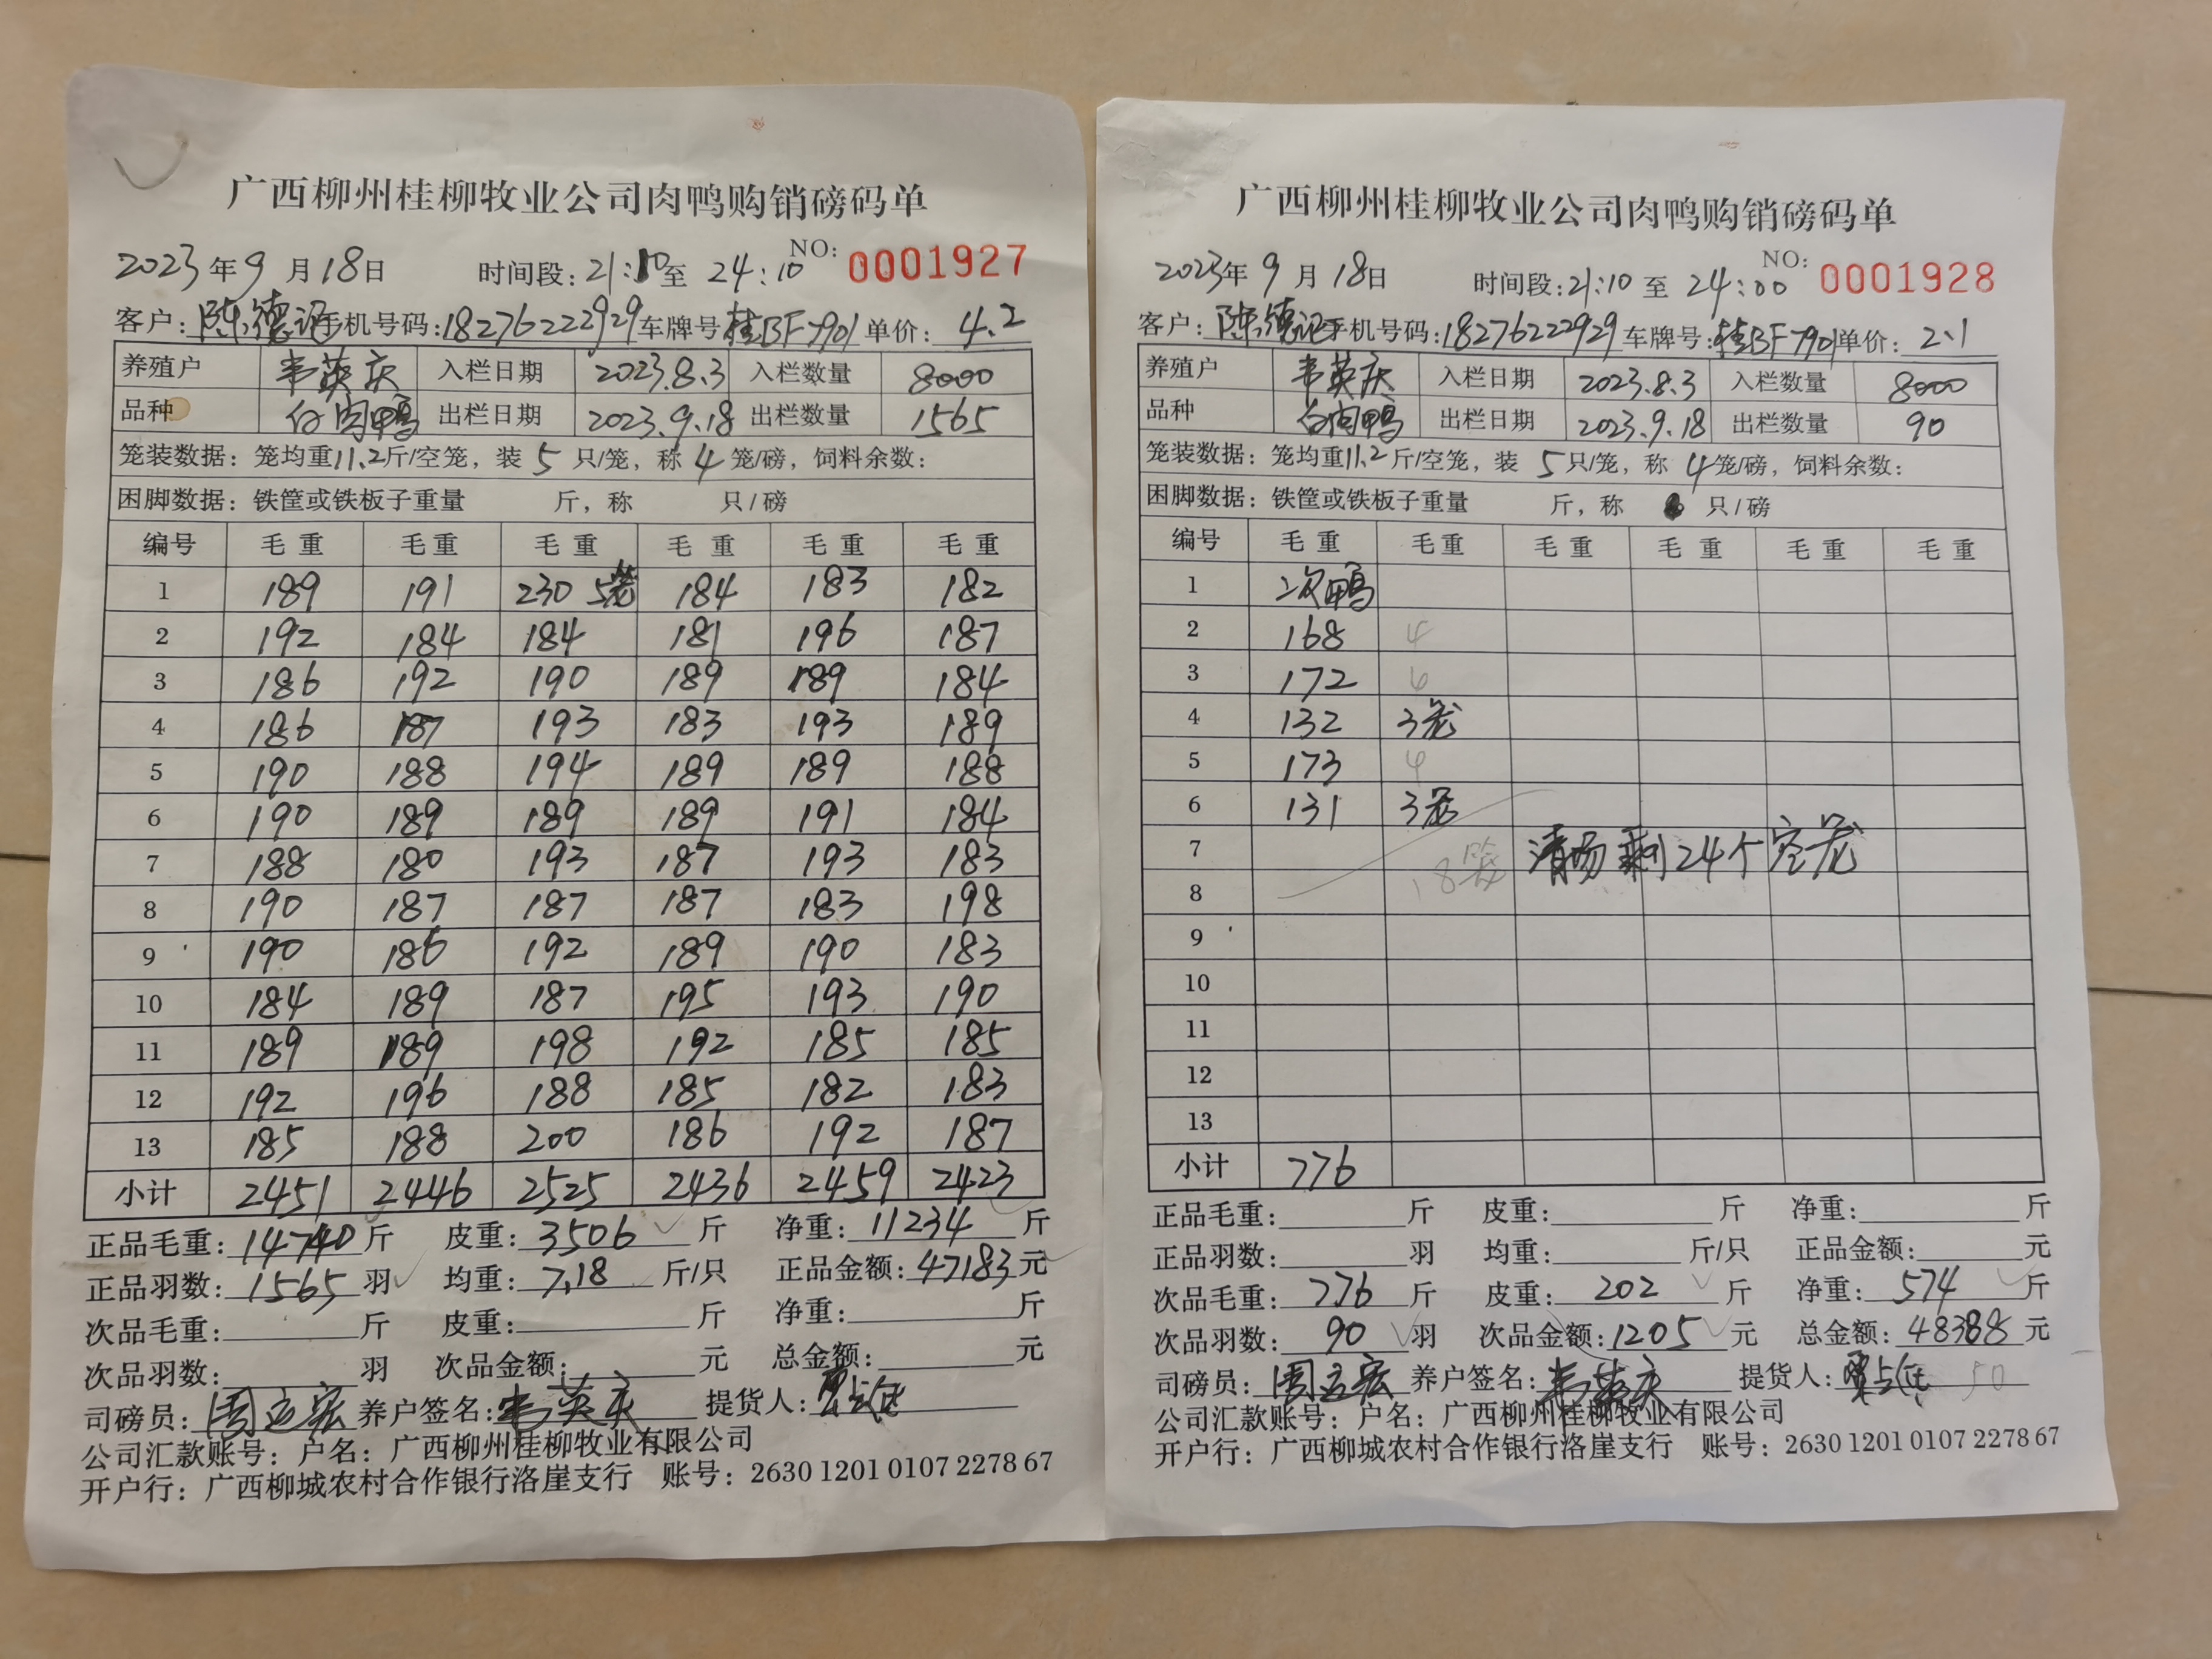 广西柳州桂柳牧业公司肉鸭购销磅码单
2023年9月18日 时间段:21:10至24:10 NO: 0001927
客户:陈德记 手机号码:18276222929 车牌号 桂BF7901 单价:4.2
养殖户 韦英庆 入栏日期 2023.8.3 入栏数量 8000
品种 白肉鸭 出栏日期 2023.9.18 出栏数量 1565
笼装数据:笼均重11.2斤/空笼,装5只/笼,称4笼/磅,饲料余数:
困脚数据:铁筐或铁板子重量 斤,称 只/磅
编号 毛重 毛重 毛重 毛重 毛重 毛重
1 189 191 230 5笼 184 183 182
2 192 184 184 181 196 187
3 186 192 190 189 189 184
4 186 187 193 183 193 189
5 190 188 194 189 189 188
6 190 189 189 189 191 184
7 188 180 193 187 193 183
8 190 187 187 187 183 198
9 190 186 192 189 190 183
10 184 189 187 195 193 190
11 189 189 198 192 185 185
12 192 196 188 185 182 183
13 185 188 200 186 192 187
小计 2451 2446 2525 2436 2459 2423
正品毛重:14740斤 皮重:3506斤 净重:11234斤
正品羽数:1565羽 均重:7.18斤/只 正品金额:47183元
次品毛重:斤 皮重:斤 净重:斤
次品羽数:羽 次品金额:元 总金额:元
司磅员:周立宏 养户签名:韦英庆 提货人:
公司汇款账号:户名:广西柳州桂柳牧业有限公司
开户行:广西柳城农村合作银行洛崖支行 账号:2630 1201 0107 2278 67
广西柳州桂柳牧业公司肉鸭购销磅码单
2023年9月18日 时间段:21:10至24:00 NO: 0001928
客户:陈德记 手机号码:18276222929 车牌号:桂BF7901 单价:2.1
养殖户 韦英庆 入栏日期 2023.8.3 入栏数量 8000
品种 白肉鸭 出栏日期 2023.9.18 出栏数量 90
笼装数据:笼均重11.2斤/空笼,装5只/笼,称4笼/磅,饲料余数:
困脚数据:铁筐或铁板子重量 斤,称 只/磅
编号 毛重 毛重 毛重 毛重 毛重 毛重
1 次鸭
2 168 4
3 172 4
4 132 3笼
5 173 4
6 131 3笼
7 18笼 清场剩24个空笼
8
9
10
11
12
13
小计 776
正品毛重:斤 皮重:斤 净重:斤
正品羽数:羽 均重:斤/只 正品金额:元
次品毛重:776斤 皮重:202斤 净重:574斤
次品羽数:90羽 次品金额:1205元 总金额:48388元
司磅员:周立宏 养户签名:韦英庆 提货人: 50
公司汇款账号:户名:广西柳州桂柳牧业有限公司
开户行:广西柳城农村合作银行洛崖支行 账号:2630 1201 0107 2278 67